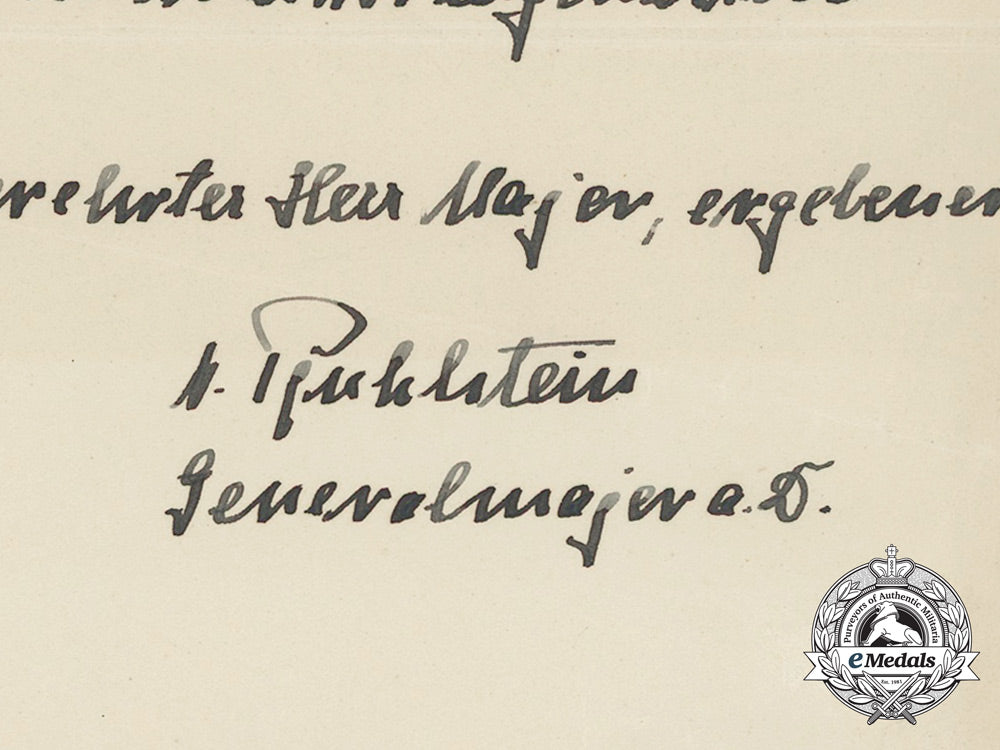 verehrter Herr Major, ergebener
v. Pfuhlstein
Generalmajor a. D.
Purveyors of Authentic Militaria
eMedals
Est. 1981